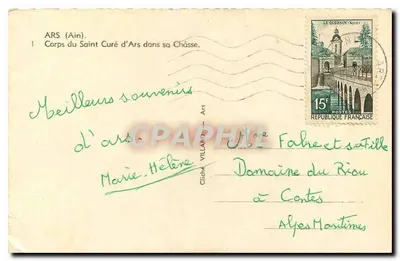 ARS (Ain).
1 Corps du Saint Curé d'Ars dans sa Châsse.
Meilleurs souvenirs
d'ars.
Marie-Hélène
Cliché VILLARD - Ars
LE QUESNOY (Nord)
15F
RÉPUBLIQUE FRANÇAISE
Mme Fabre et sa fille
Domaine du Riou
à Contes
Alpes Maritimes
CPRPHOTOS